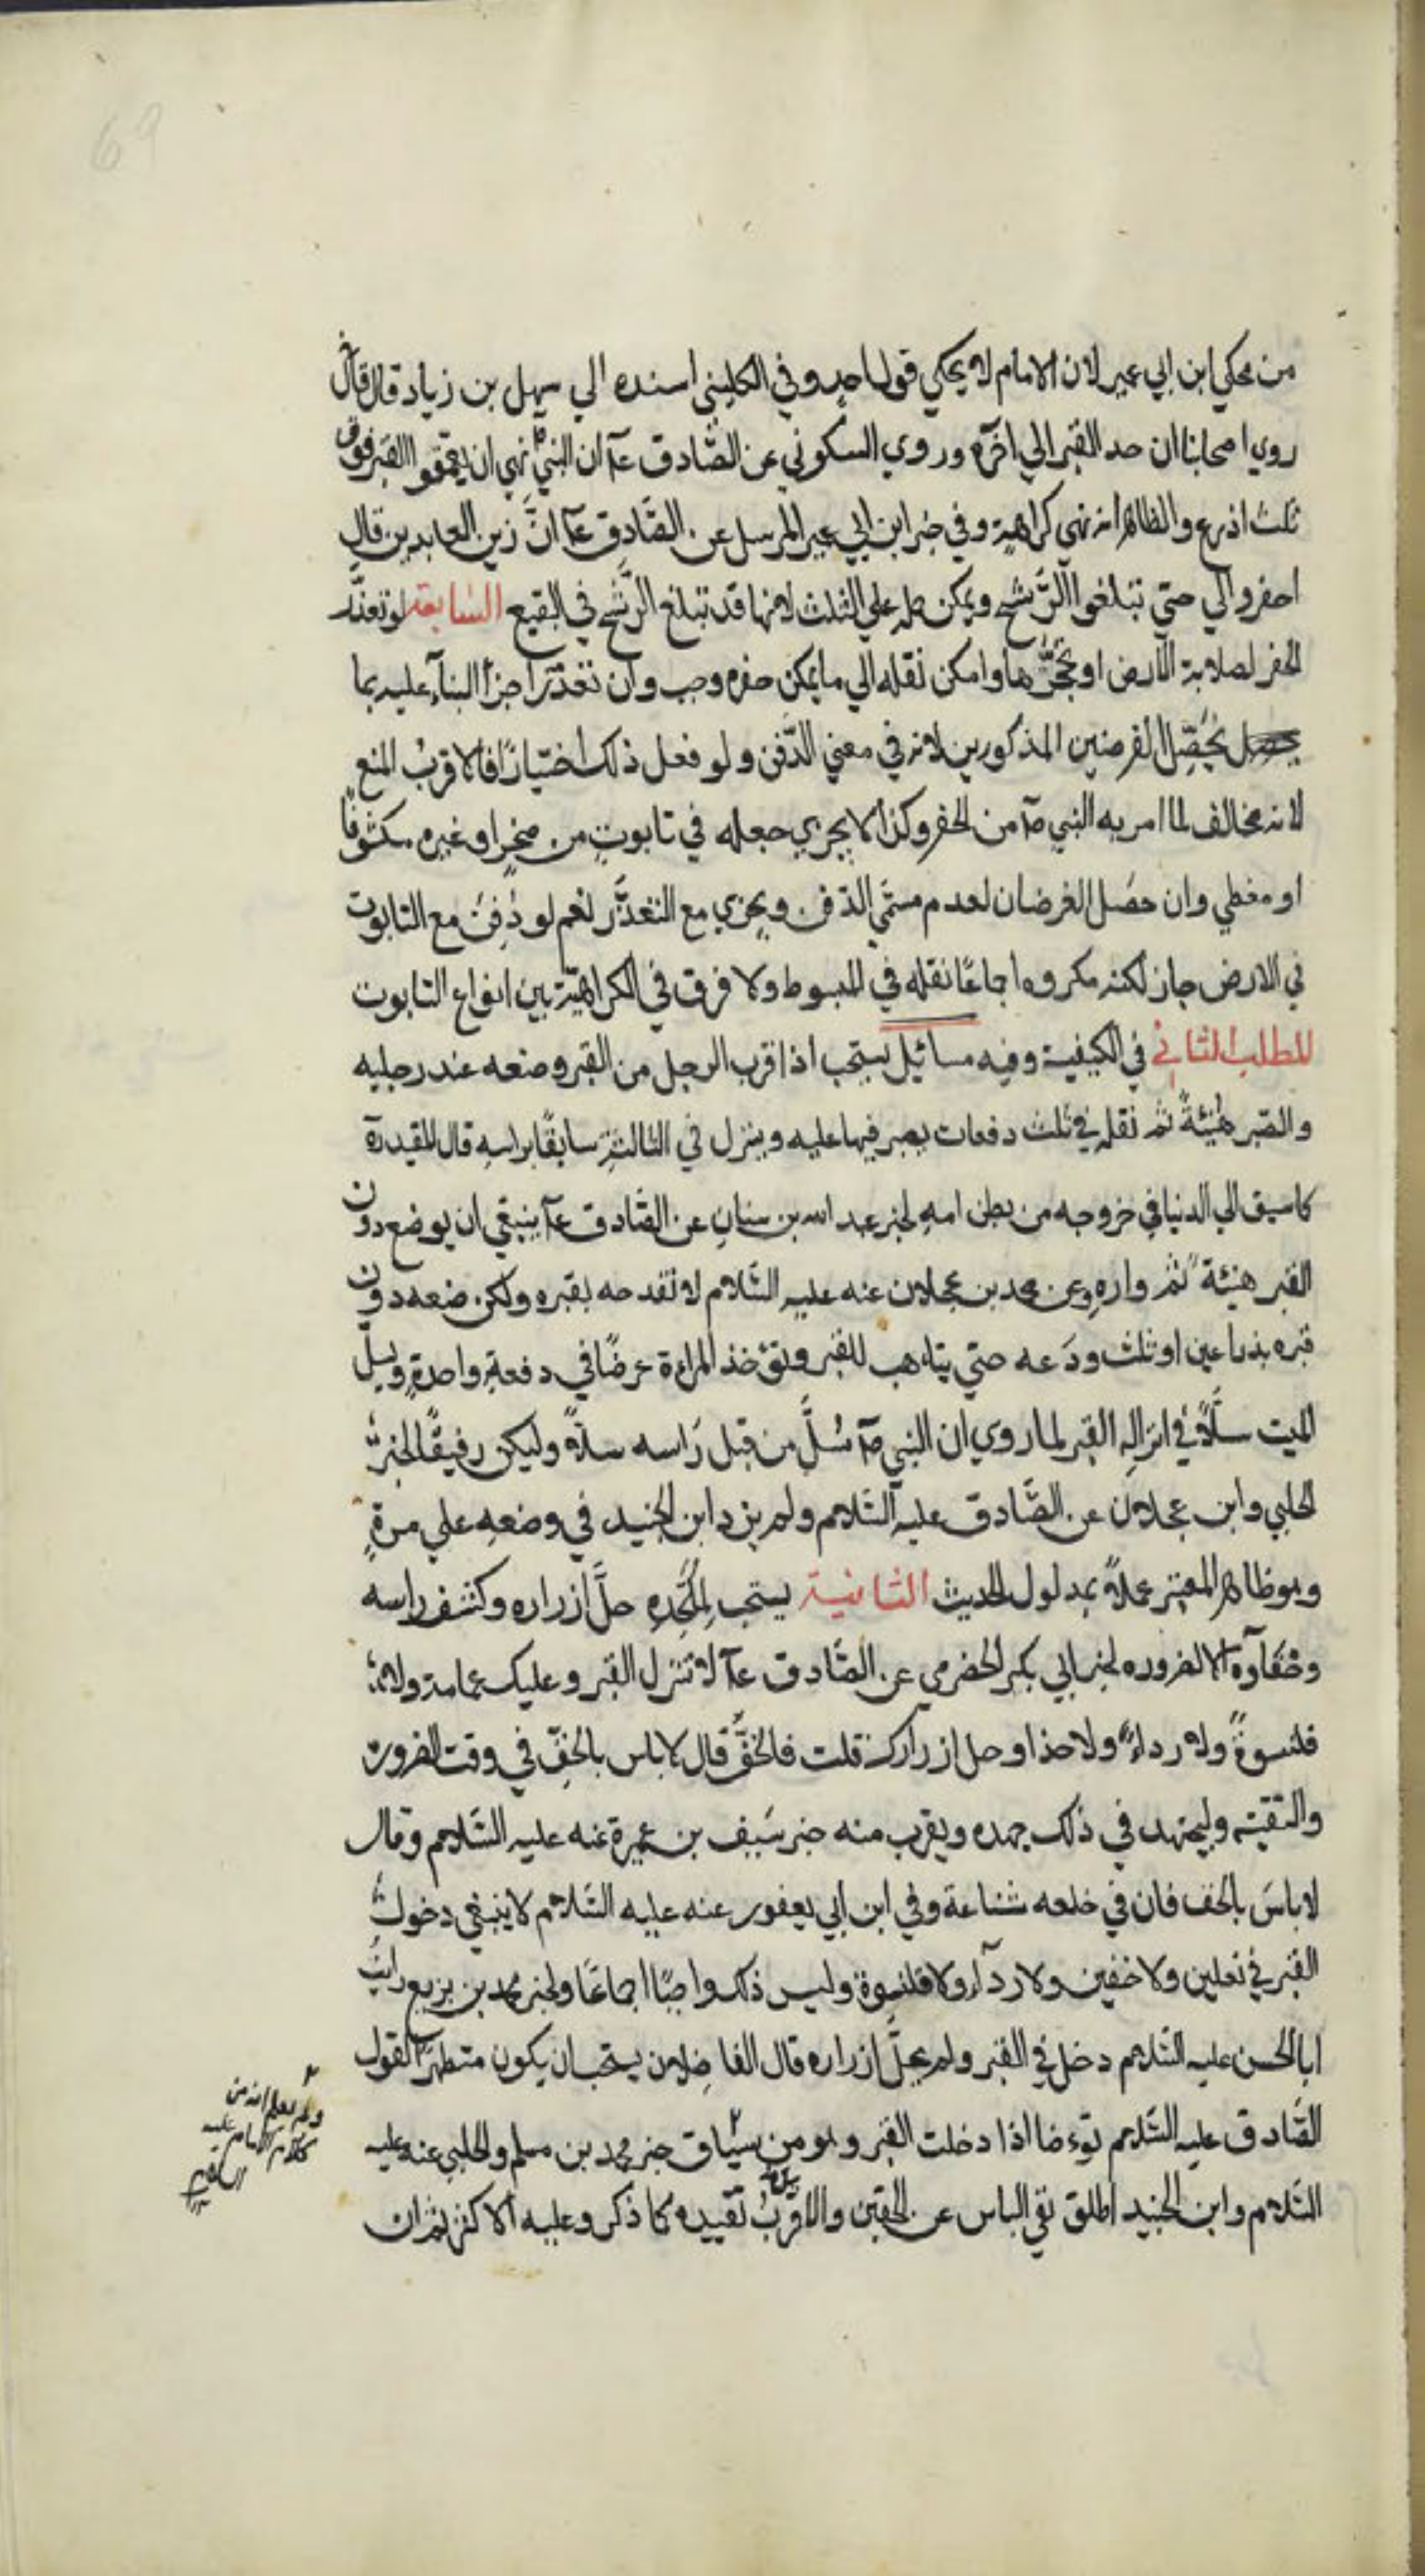 69
من محكي ابن ابي عمير لان الامام لا يحكي قول احد وفي الكليني اسنده الي سهل بن زياد قال قال
روي اصحابنا ان حد القبر الي اخره وروي السكوني عن الصّادق عآ ان النبي نهي ان يعمقوا القبر فوق
ثلث اذرع والظاهر انه نهي كراهية وفي خبر ابن ابي عمير المرسل عن الصّادق عآ انّ زين العابدين قال
احفروا لي حتي تبلغوا الرّشح ويمكن حمله علي الثلث لانها قد تبلغ الرّشح في البقيع السابعة لو تعذّر
الحفر لصلابة الارض او تحجّرها وامكن نقله الي ما يمكن حفره وجب وان تعذّر اجزأ البنآء عليه بما
يحصّل الغرضين المذكورين لانه في معني الدّفن ولو فعل ذلك اختيارًا فالاقربُ المنع
لانه مخالف لما امر به النبي صآ من الحفر وكذا لا يجزي جعله في تابوتٍ من صخرٍ او غيره مكشوفًا
او مغطي وان حصَل الغرضان لعدم مسمّي الدّفن ويجزي مع التعذّر نعم لو دُفِنَ مع التابوت
في الارض جاز لكنه مكروه اجماعًا نقله في المبسوط ولا فرق في الكراهيّة بين انواع التابوت
المطلب الثاني في الكيفية وفيه مسائل يستحب اذا قرب الرجل من القبر وضعه عند رجليه
والصّبر هُنيئةً ثم نقله في ثلث دفعات يصبر فيها عليه وينزل في الثالثةِ سابقًا براسهِ قال المفيد رة
كما سبق الي الدنيا في خروجه من بطن امهِ لخبر عبد الله بن سنانٍ عن الصّادق عآ ينبغي ان يوضع دون
القبر هنيئة ثم واره وعن محمد بن عجلان عنه عليه السّلام لا تفدحه بقبره ولكن ضعه دون
قبره بذراعين او ثلث ودَعه حتي يتاهب للقبر وتؤخذ المراءة عرضًا في دفعةٍ واحدةٍ ويسل
الميت سلًّا في انزاله القبر لما روي ان النبي صآ سُلَّ من قبل رَاسه سلًا وليكن رفيقًا لخبر
الحلبي وابن عجلان عن الصّادق عليه السّلام ولم يزد ابن الجنيد في وضعهِ علي مرةٍ
وهو ظاهر المعتبر عملًا بمدلول الحديث الثانية يستحب لِمُلْحِدِهِ حلَّ ازراره وكشف راسه
وحفآؤه الا لضرورة لخبر ابي بكر الحضرمي عن الصّادق عآ لا تنزل القبر وعليك عمامة ولا
قلنسوةً ولا رداءً ولا حذا وحل ازرارك قلت فالخفّ قال لا باس بالخفّ في وقت الضرورة
والتقيّة وليجتهد في ذلك جهده ويقرب منه خبر سَيف بن عميرة عنه عليه السّلام وقال
لا باسَ بالخف فان في خلعه شناعة وفي ابن ابي يعفور عنه عليه السّلام لا ينبغي دخول
القبر في نعلين ولا خفين ولا ردآء ولا قلنسوة وليس ذلك واجبًا اجماعًا ولخبر محمد بن بزيع رايتُ
ابا الحسن عليه السّلام دخل في القبر ولم يحلّ ازراره قال الفاضلان يستحب ان يكون متطهرًا لقول
الصّادق عليه السّلام توءضا اذا دخلت القبر وهو من سيٰاق خبر محمد بن مسلم والحلبي عنه عليه
السّلام وابن الجنيد اطلق نفي الباس عن الخفّين والاقربُ تقييده كما ذكر وعليه الاكثر ثم ان
ولم يعلم انه من
كلام الامام عليه
السلام